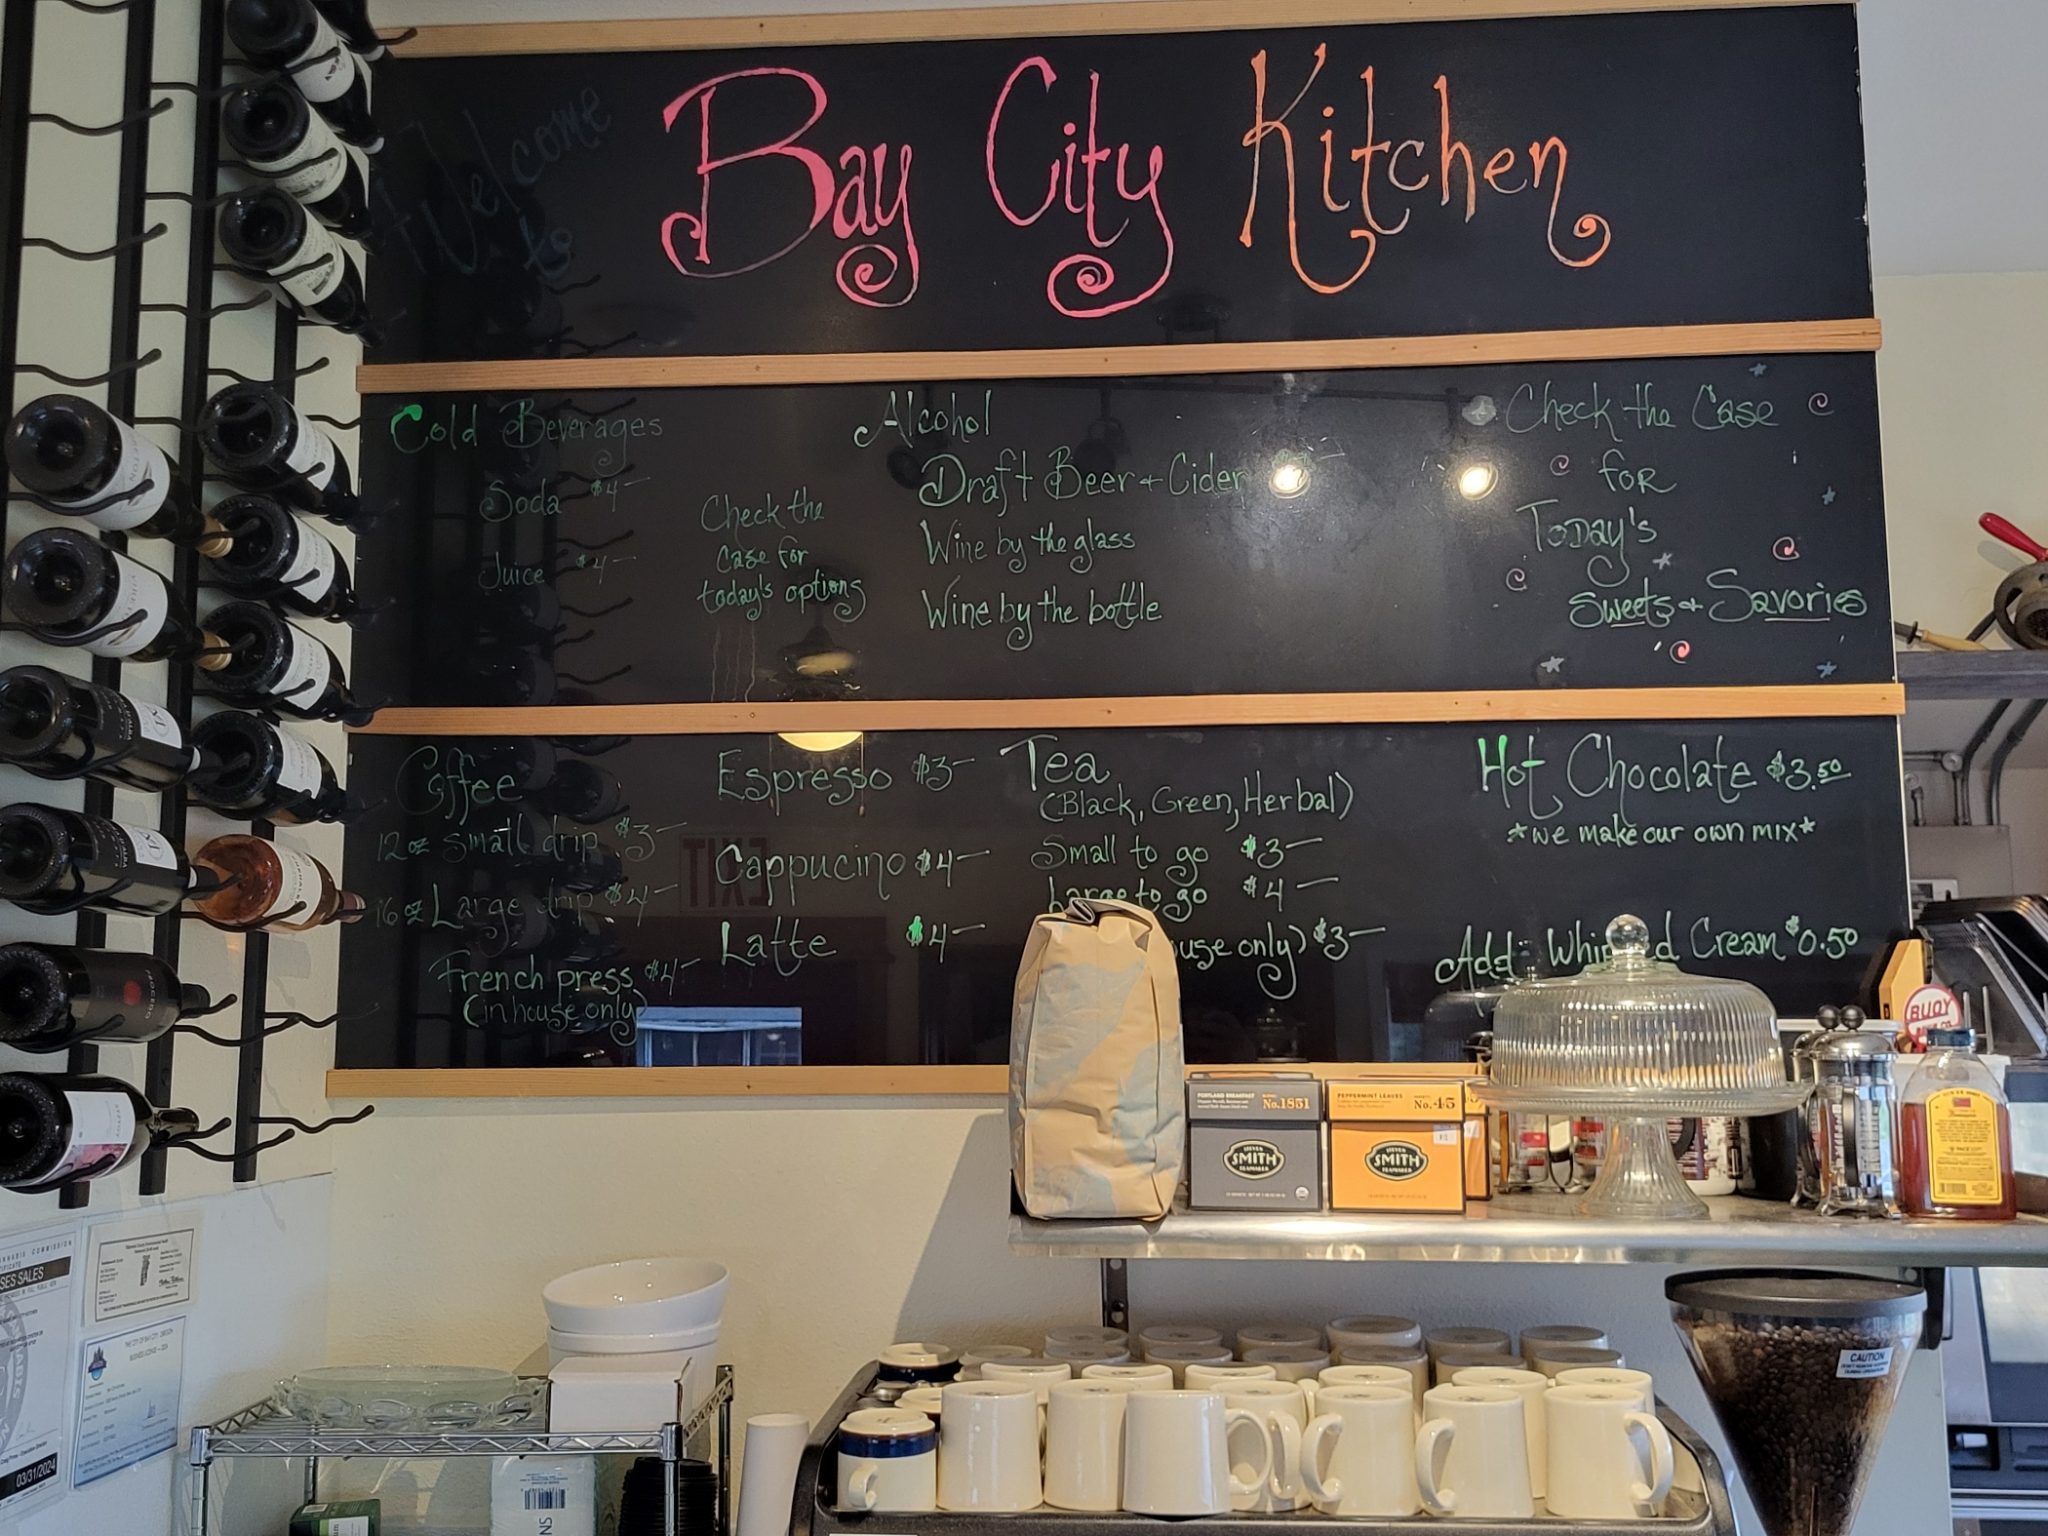 Welcome
to
Bay City Kitchen
Cold Beverages
Soda $4-
Juice $4-
Check the
case for
today's options
Alcohol
Draft Beer + Cider
Wine by the glass
Wine by the bottle
Check the Case
for
Today's
Sweets + Savories
Coffee
12oz small drip $3-
16 oz Large drip $4-
French press $4-
(in house only)
Espresso $3-
Cappucino $4-
Latte $4-
Tea
(Black, Green, Herbal)
Small to go $3-
Large to go $4-
ouse only) $3-
Hot Chocolate $3.50
*we make our own mix*
Add Whipped Cream $0.50
EXIT
BUOY
PORTLAND BREAKFAST
No.1851
STEVEN
SMITH
TEAMAKER
PEPPERMINT LEAVES
No.45
STEVEN
SMITH
TEAMAKER
CAUTION
SES SALES
03/31/2024